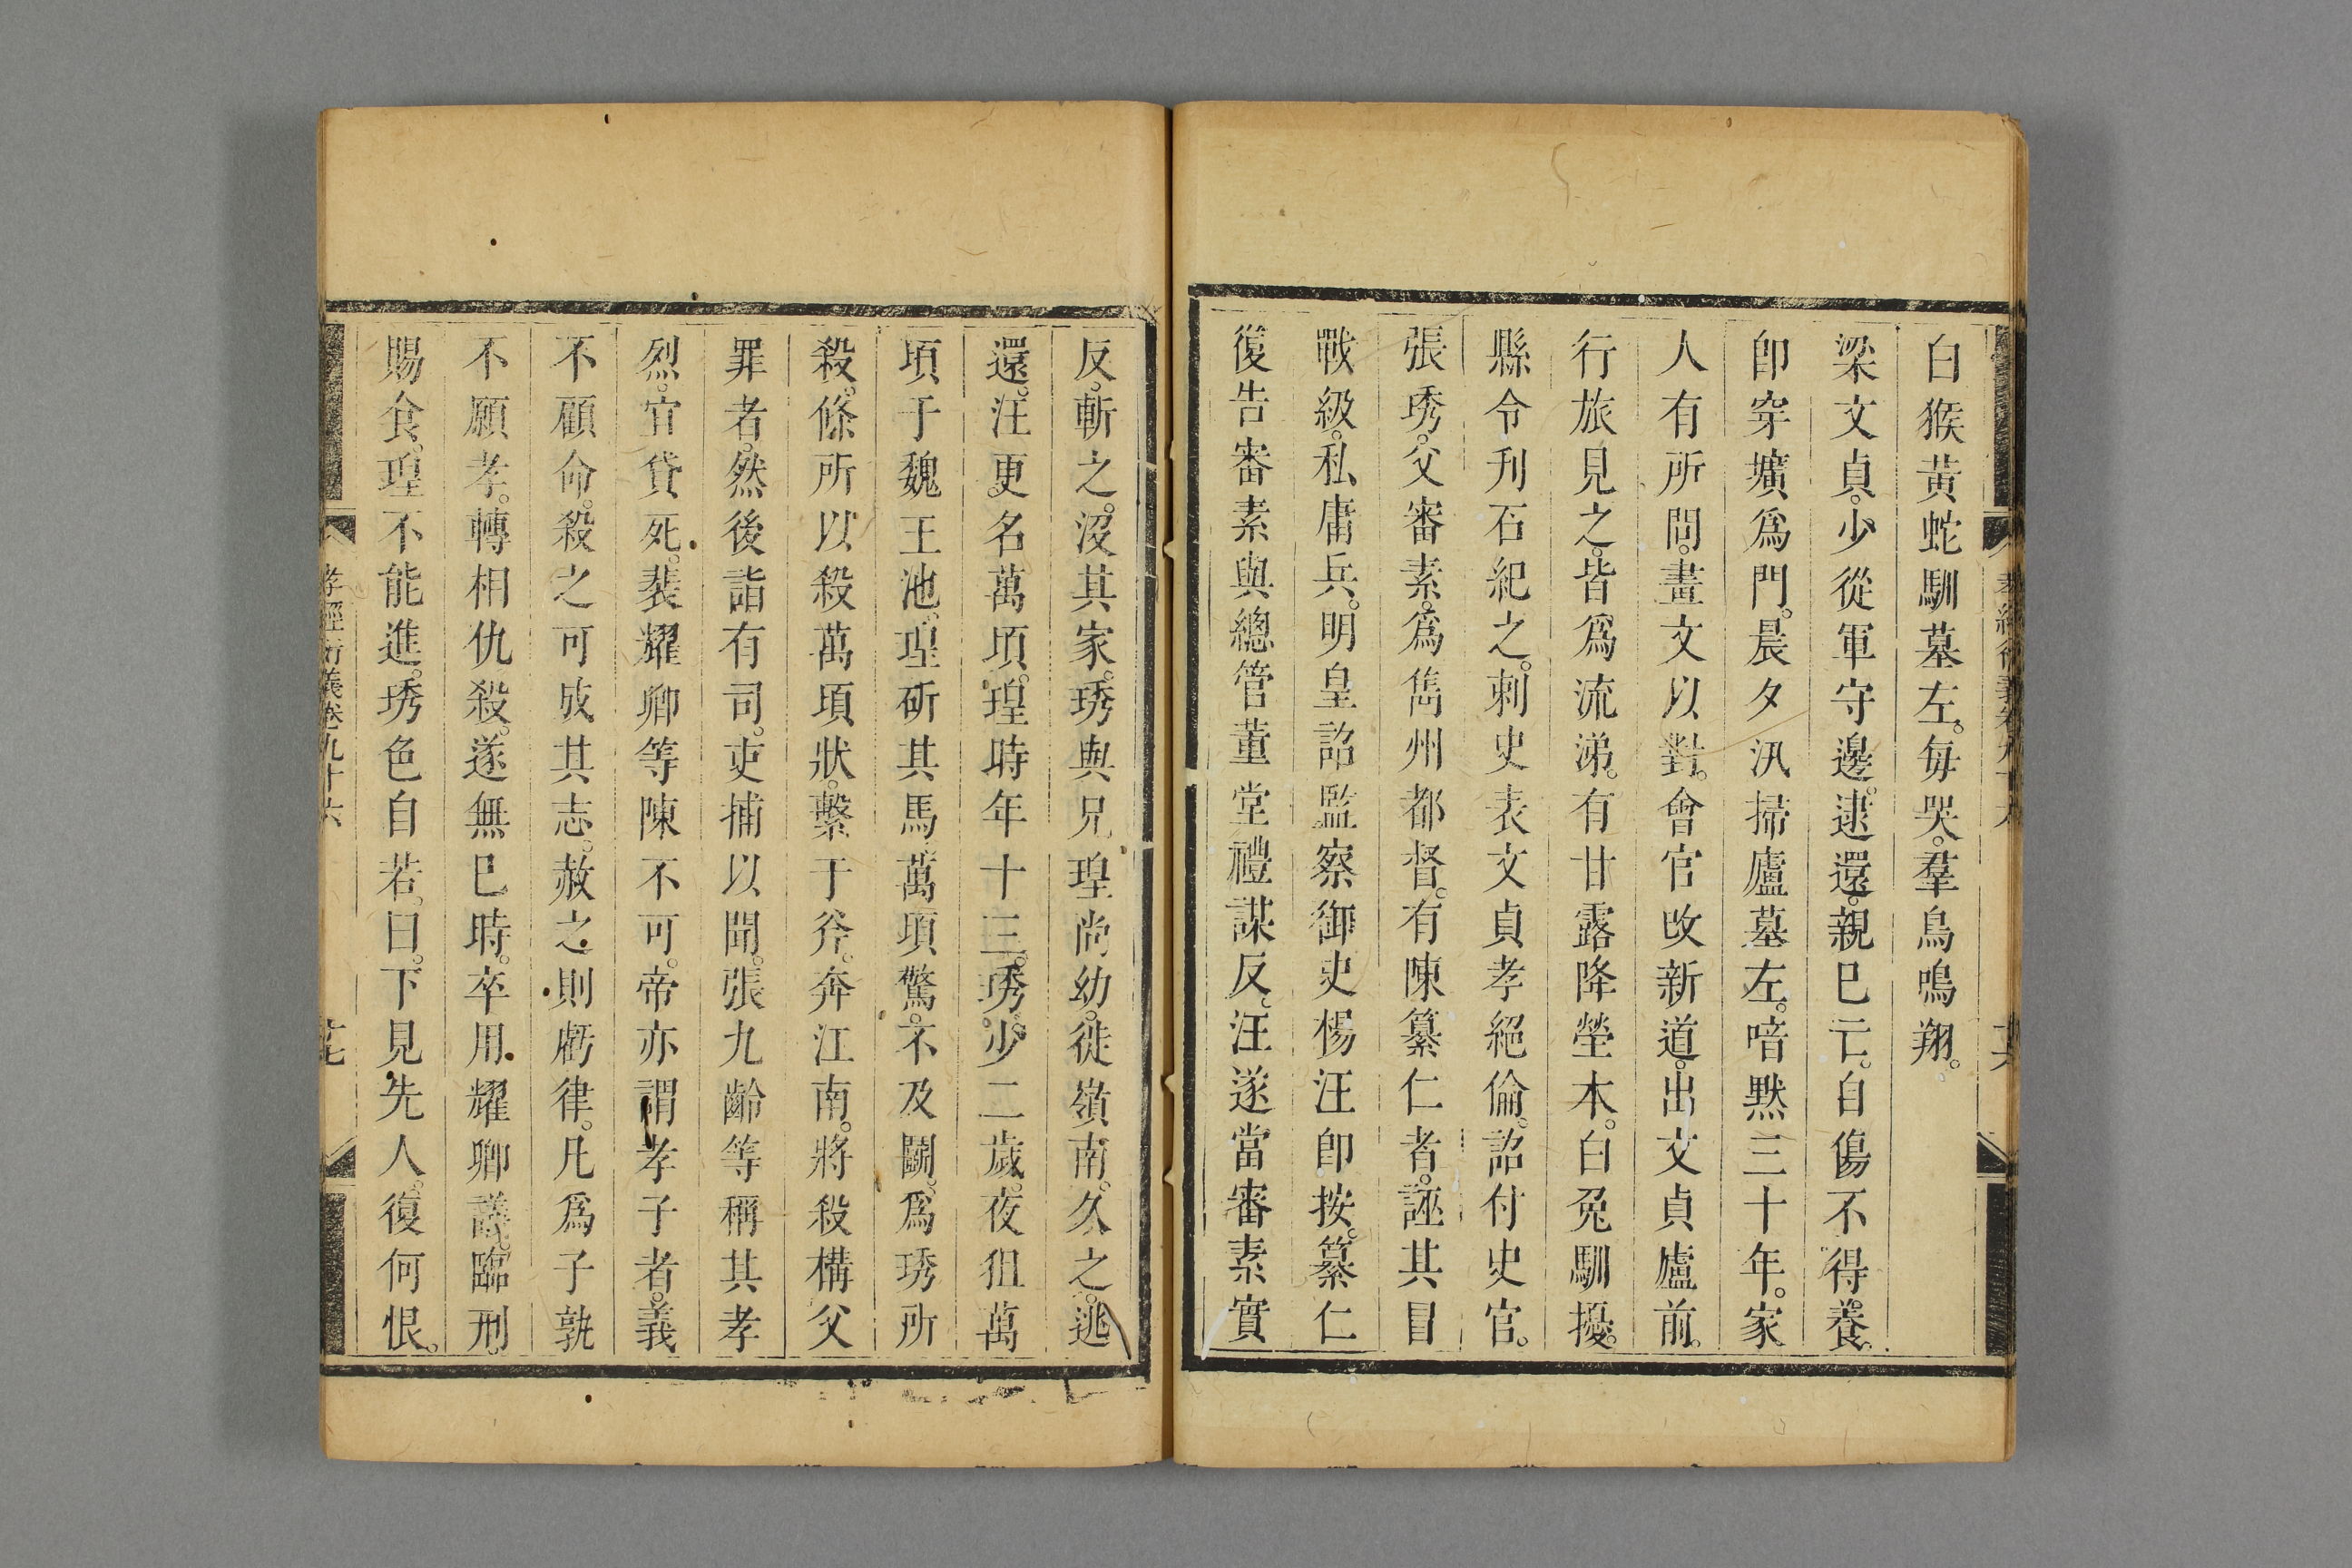 白猴黃蛇馴墓左。每哭。羣鳥鳴翔。
梁文貞。少從軍守邊。逮還。親已亡。自傷不得養。
卽穿壙爲門。晨夕汛掃廬墓左。喑默三十年。家
人有所問。畫文以對。會官改新道。出文貞廬前。
行旅見之。皆爲流涕。有甘露降塋木。白兔馴擾。
縣令刋石紀之。刺史表文貞孝絕倫。詔付史官。
張琇。父審素。爲雋州都督。有陳纂仁者。誣其冒
戰級。私庸兵。明皇詔監察御史楊汪卽按。纂仁
復告審素與總管董堂禮謀反。汪遂當審素實
反。斬之。沒其家。琇與兄瑝尚幼。徙嶺南。久之。逃
還。汪更。名萬頃。瑝時年十三。琇。少二歲。夜狙萬
頃于魏王池。瑝斫其馬。萬頃驚。不及鬭。爲琇所
殺。條所以殺萬頃狀。繫于斧。奔江南。將殺構父
罪者。然後詣有司。吏捕以聞。張九齡等稱其孝
烈。宜貸死。裴耀卿等陳不可。帝亦謂孝子者。義
不顧命。殺之可成其志。赦之則虧律。凡爲子孰
不願孝。轉相仇殺。遂無已時。卒用耀卿議。臨刑。
賜食。瑝不能進。琇色自若。曰。下見先人。復何恨。
孝經衍義卷九十六